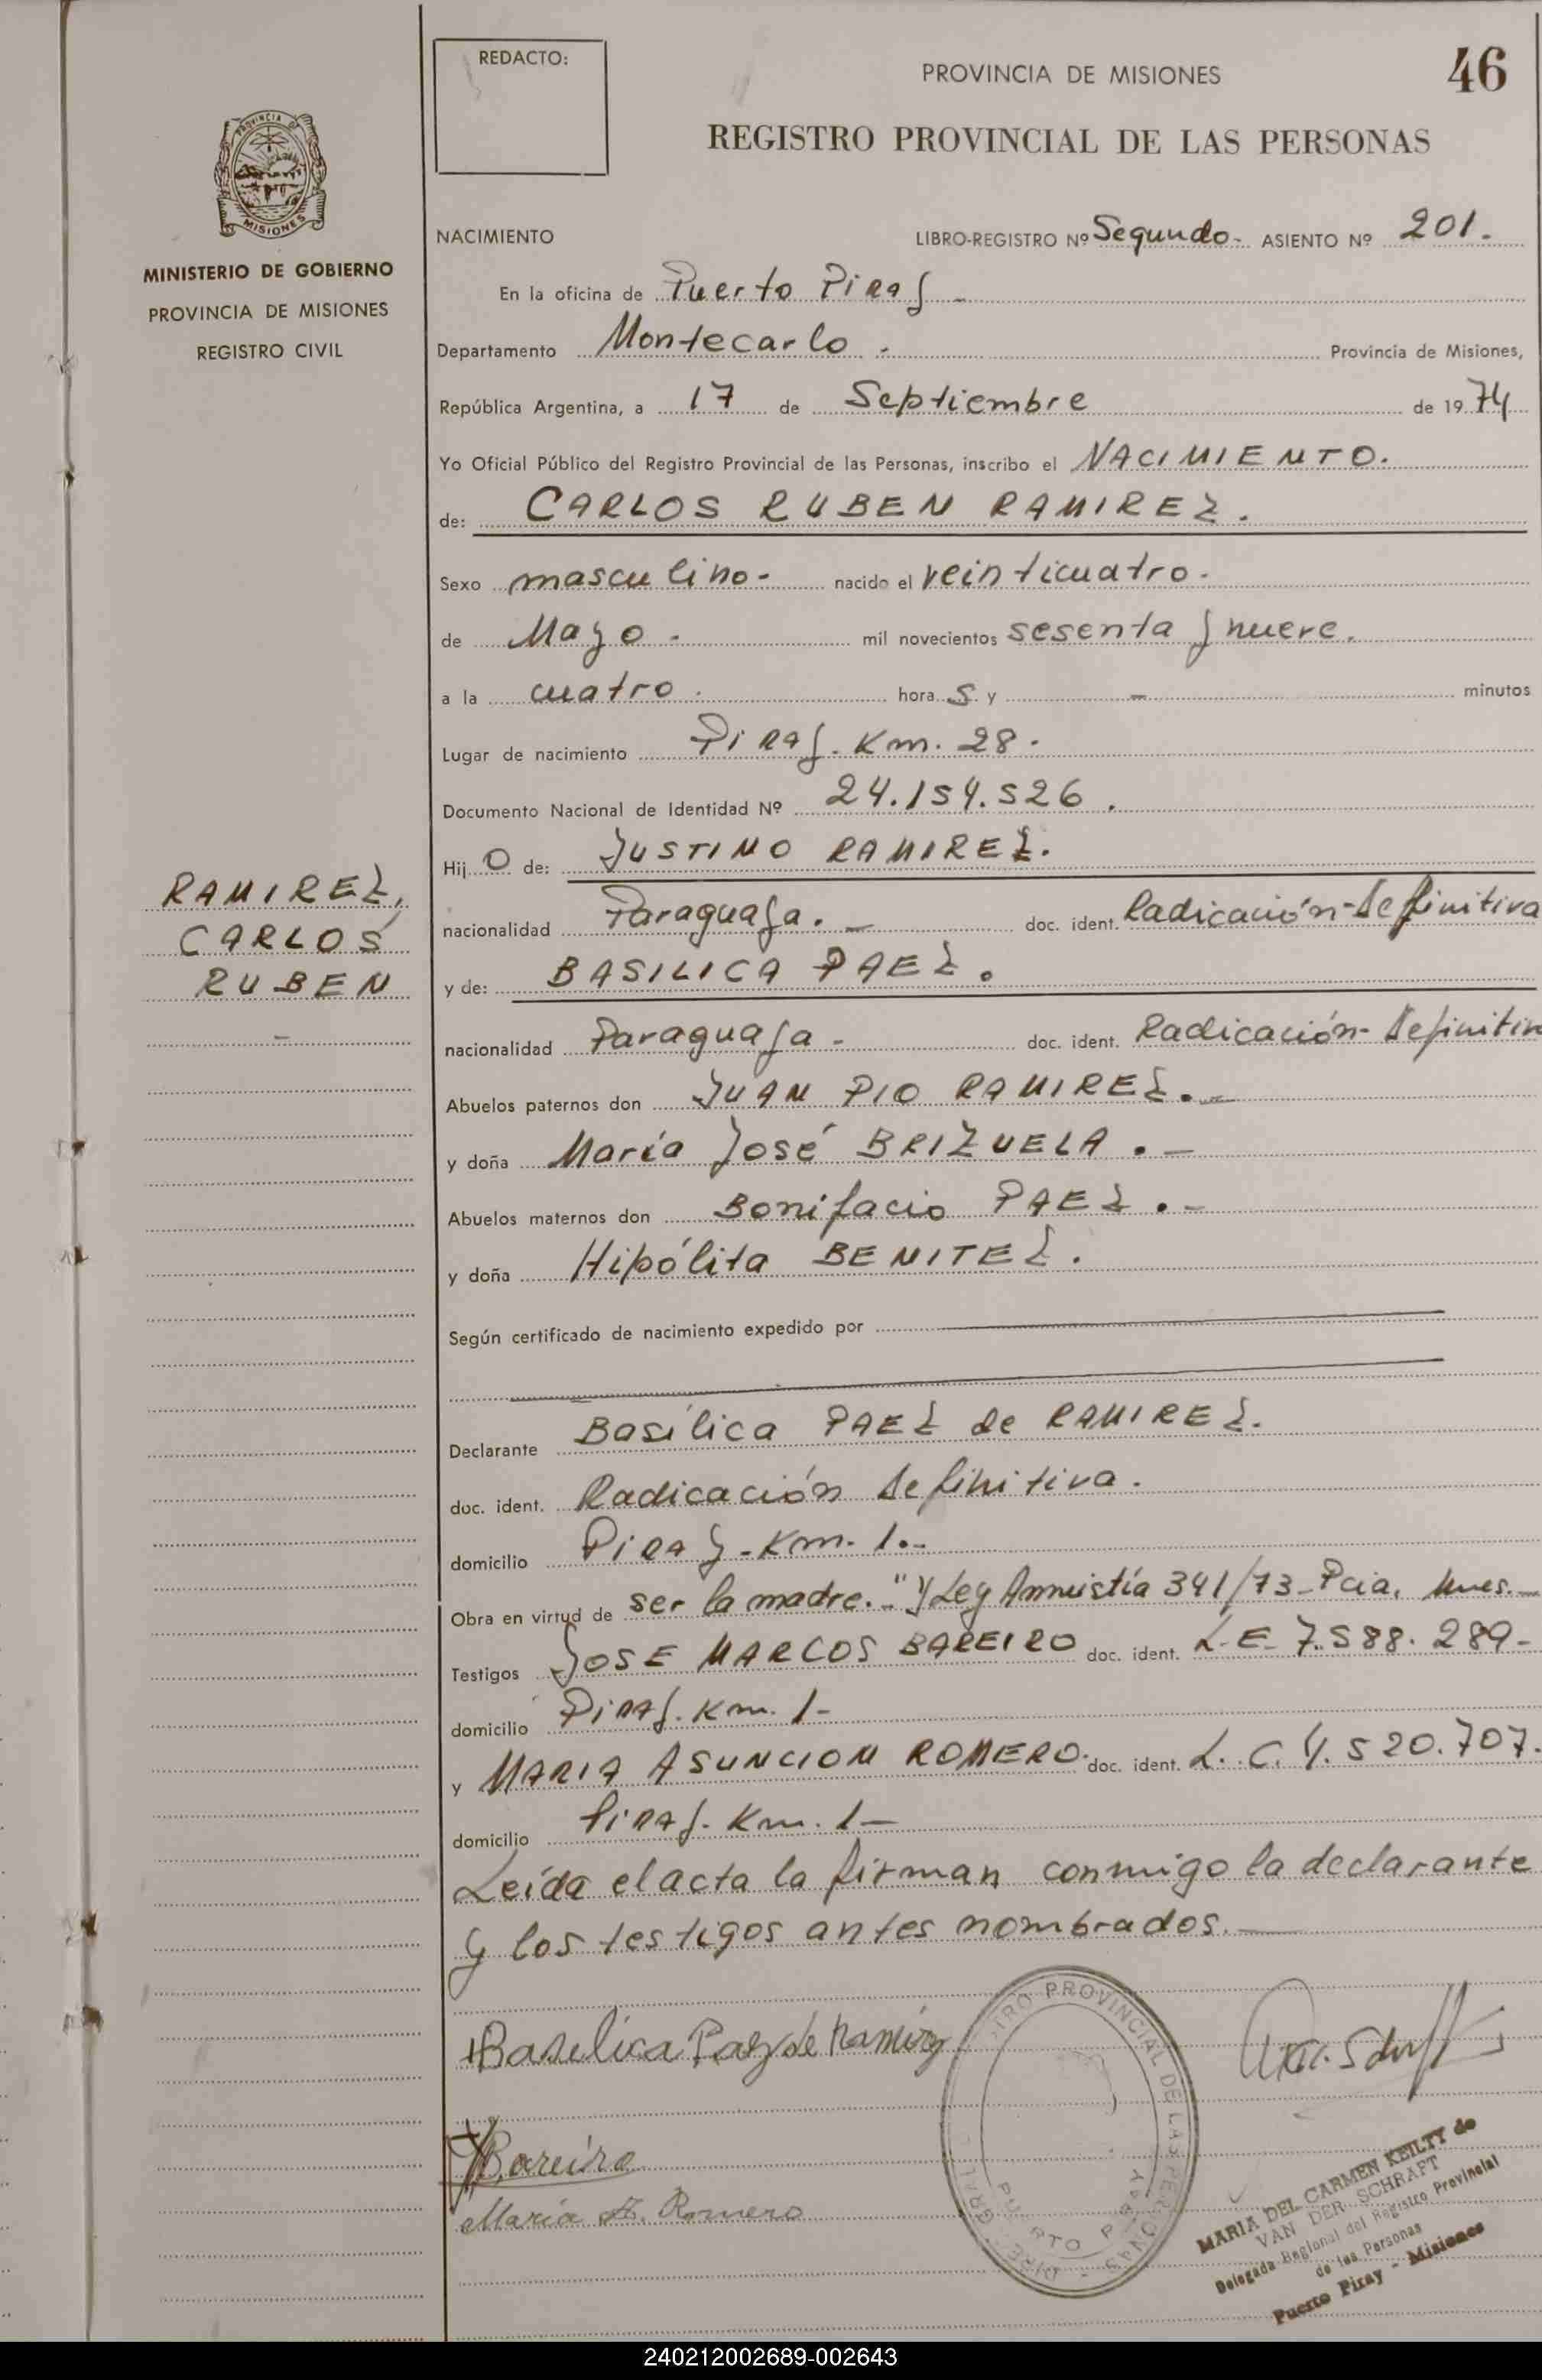 REDACTO:
PROVINCIA DE MISIONES
46
REGISTRO PROVINCIAL DE LAS PERSONAS
PROVINCIA DE
MISIONES
MINISTERIO DE GOBIERNO
PROVINCIA DE MISIONES
REGISTRO CIVIL
NACIMIENTO LIBRO-REGISTRO Nº Segundo- ASIENTO Nº 201.
En la oficina de Puerto Piray -
Departamento Montecarlo . Provincia de Misiones,
República Argentina, a 17 de Septiembre de 1974
Yo Oficial Público del Registro Provincial de las Personas, inscribo el NACIMIENTO.
de: CARLOS RUBEN RAMIREZ.
Sexo masculino- nacido el veinticuatro-
de Mayo - mil novecientos sesenta y nueve.
a la cuatro . hora s y - minutos
Lugar de nacimiento Piray. Km. 28-
Documento Nacional de Identidad Nº 24.154.526 .
Hij o de: JUSTINO RAMIREZ.
nacionalidad Paraguaya. - doc. ident. Radicación-Definitiva
y de: BASILICA PAEZ.
nacionalidad Paraguaya - doc. ident. Radicación-Definitiv
Abuelos paternos don JUAN PIO RAMIREZ.-
y doña María José BRIZUELA . -
Abuelos maternos don Bonifacio PAEZ . -
y doña Hipólita BENITEZ.
Según certificado de nacimiento expedido por
Declarante Basílica PAEZ de RAMIREZ.
doc. ident. Radicación Definitiva.
domicilio Piray-Km. 1.-
Obra en virtud de ser la madre.-" y Ley Amnistía 341/73-Pcia. Mnes.-
Testigos JOSE MARCOS BAREIRO doc. ident. L.E. 7.588.289-
domicilio Piray. Km. 1-
y MARIA ASUNCION ROMERO. doc. ident. L.C. 4.520.707.
domicilio Piray. Km. 1-
Leída el acta la firman conmigo la declarante
y los testigos antes nombrados.-
RAMIREZ,
CARLOS
RUBEN
-
Basilica Paez de Ramirez
Bareiro
Maria A. Romero
PROVINCIAL DE LAS PERSONAS
PUERTO PIRAY
MARIA DEL CARMEN KEILTY de
VAN DER SCHRAFT
Delegada Regional del Registro Provincial
de las Personas
Puerto Piray - Misiones
240212002689-002643